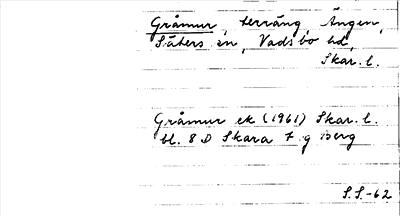 Gråmur, terräng, Ängen,
Säters sn, Vadsbo hd,
Skar. l.
Gråmur ek (1961) Skar. l.
bl. 8 D Skara 7 g Berg
S.S.-62